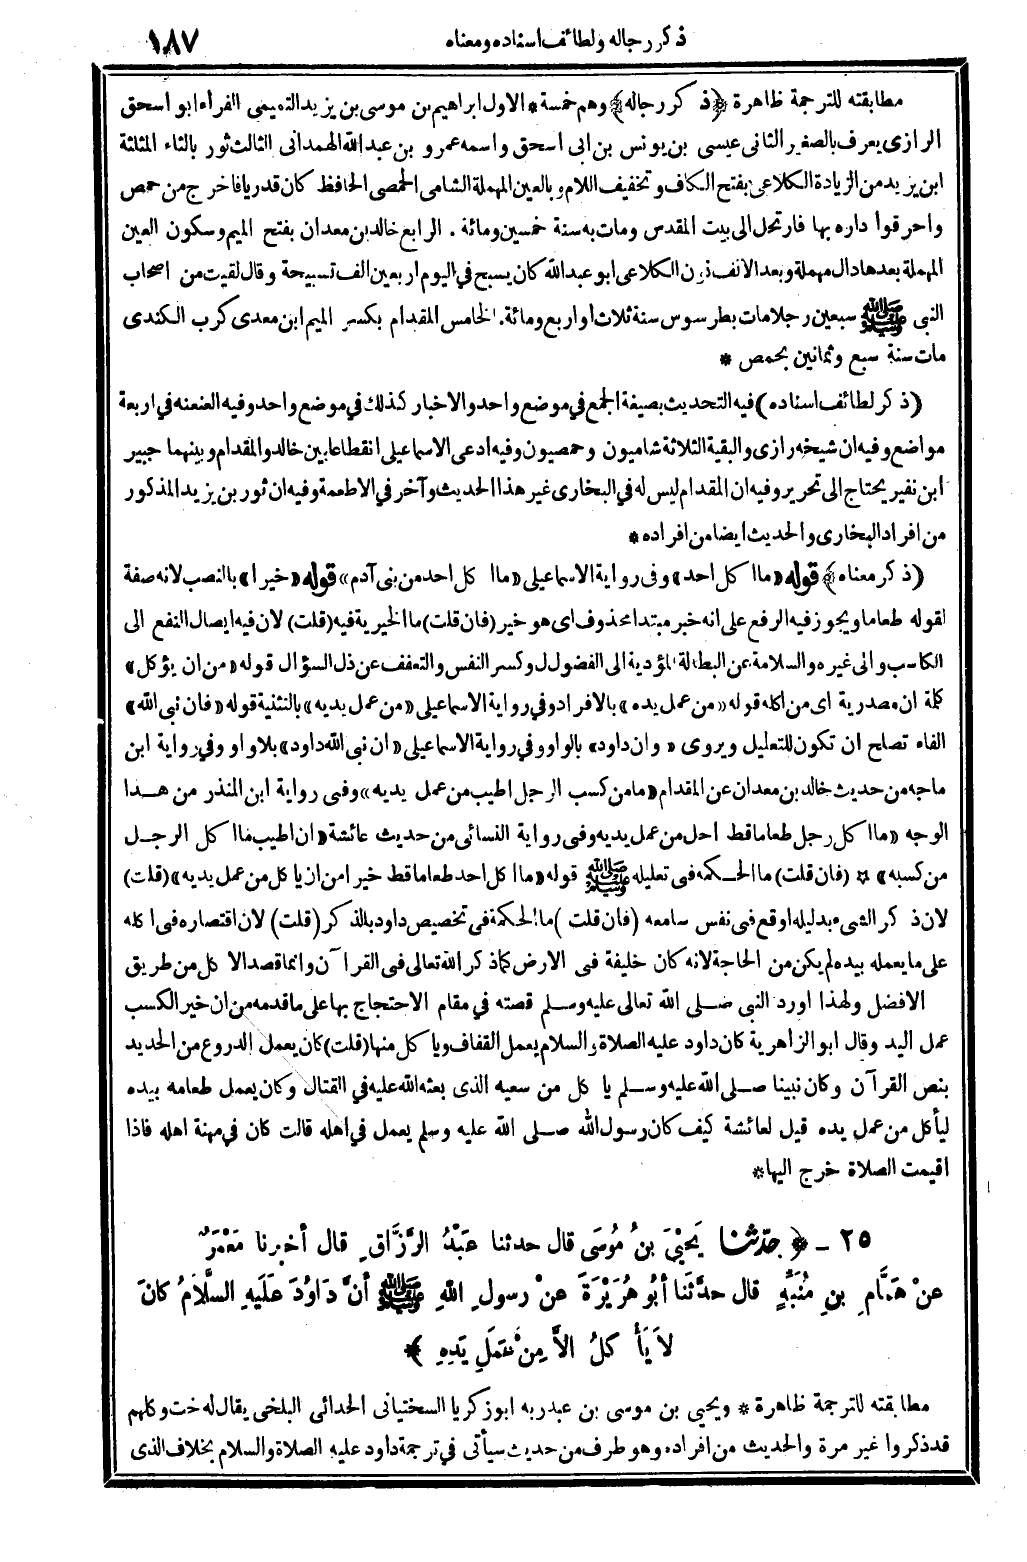 ذكر رجاله ولطائف اسناده ومعناه
١٨٧
مطابقته للترجمة ظاهرة ﴿ذكر رجاله﴾ وهم خمسة * الاول ابراهيم بن موسى بن يزيد التميمى الفراء ابو اسحق
الرازى يعرف بالصغير الثانى عيسى بن يونس بن ابى اسحق واسمه عمرو بن عبد الله الهمدانى الثالث ثور بالثاء المثلثة
ابن يزيد من الزيادة الكلاعى بفتح الكاف وتخفيف اللام وبالعين المهملة الشامى الحمصى الحافظ كان قدريا فاخرج من حمص
واحرقوا داره بها فارتحل الى بيت المقدس ومات به سنة خمسين ومائة . الرابع خالد بن معدان بفتح الميم وسكون العين
المهملة بعدها دال مهملة وبعد الالف نون الكلاعى ابو عبد الله كان يسبح فى اليوم اربعين الف تسبيحة وقال لقيت من اصحاب
النبى ﷺ سبعين رجلا مات بطرسوس سنة ثلاث او اربع ومائة . الخامس المقدام بكسر الميم ابن معدى كرب الكندى
مات سنة سبع وثمانين بحمص *
(ذكر لطائف اسناده) فيه التحديث بصيغة الجمع فى موضع واحد والاخبار كذلك فى موضع واحد وفيه العنعنه فى اربعة
مواضع وفيه ان شيخه رازى والبقية الثلاثة شاميون وحمصيون وفيه ادعى الاسماعيلى انقطاعا بين خالد والمقدام وبينهما جبير
ابن نفير يحتاج الى تحرير وفيه ان المقدام ليس له فى البخارى غير هذا الحديث وآخر فى الاطعمة وفيه ان ثور بن يزيد المذكور
من افراد البخارى والحديث ايضا من افراده *
(ذكر معناه﴾ قوله «ما اكل احد» وفى رواية الاسماعيلى «ما اكل احد من بنى آدم» قوله «خيرا» بالنصب لانه صفة
لقوله طعاما ويجوز فيه الرفع على انه خبر مبتدا محذوف اى هو خير (فان قلت) ما الخيرية فيه (قلت) لان فيه ايصال النفع الى
الكاسب والى غيره والسلامة عن البطالة المؤدية الى الفضول وكسر النفس والتعفف عن ذل السؤال قوله «من ان يؤكل»
كلة ان مصدرية اى من اكله قوله «من عمل يده» بالافراد وفى رواية الاسماعيلى «من عمل يديه» بالتثنية قوله «فان نبى الله»
الفاء تصلح ان تكون للتعليل ويروى «وان داود» بالواو وفى رواية الاسماعيلى «ان نبى الله داود» بلا واو وفى رواية ابن
ماجه من حديث خالد بن معدان عن المقدام «ما من كسب الرجل اطيب من عمل يديه» وفى رواية ابن المنذر من هــذا
الوجه «ما اكل رجل طعاما قط احل من عمل يديه وفى رواية النسائى من حديث عائشة «ان اطيب ما اكل الرجــل
من كسبه» * (فان قلت) ما الحــكمة فى تعليله ﷺ قوله «ما اكل احد طعاما قط خيرا من ان يا كل من عمل يديه» (قلت)
لان ذكر الشىء بدليله اوقع فى نفس سامعه (فان قلت) ما الحكمة فى تخصيص داود بالذكر (قلت) لان اقتصاره فى اكله
على ما يعمله بيده لم يكن من الحاجة لانه كان خليفة فى الارض كما ذكر الله تعالى فى القرآن وانما قصد الا كل من طريق
الافضل ولهذا اورد النبى صــلى الله تعالى عليه وســلم قصته فى مقام الاحتجاج بها على ما قدمه من ان خير الكسب
عمل اليد وقال ابو الزاهرية كان داود عليه الصلاة والسلام يعمل القفاف ويا كل منها (قلت) كان يعمل الدروع من الحديد
بنص القرآن وكان نبينا صــلى الله عليه وســلم يا كل من سعيه الذى بعثه الله عليه فى القتال وكان يعمل طعامه بيده
ليأكل من عمل يده قيل لعائشة كيف كان رسول الله صــلى الله عليه وسلم يعمل فى اهله قالت كان فى مهنة اهله فاذا
اقيمت الصلاة خرج اليها *
٢٥ ــ ﴿ حدثنا يَحْيَى بنُ مُوسَى قال حدثنا عَبْدُ الرَّزَّاقِ قال أخبرنا مَعْمَرٌ
عنْ هَمَّامِ بنِ مُنَبِّهٍ قال حدَّثَنا أبُو هُرَيْرَةَ عنْ رسولِ اللهِ ﷺ أنَّ دَاوُدَ عَلَيهِ السَّلَامُ كانَ
لاَ يَأْ كلُ الاَّ مِنْ عَمَلِ يَدِهِ ﴾
مطابقته للترجمة ظاهرة * ويحيى بن موسى بن عبدربه ابو زكريا السختيانى الحدانى البلخى يقال له خت وكلهم
قد ذكروا غير مرة والحديث من افراده وهو طرف من حديث سيأتى فى ترجمة داود عليه الصلاة والسلام بخلاف الذى